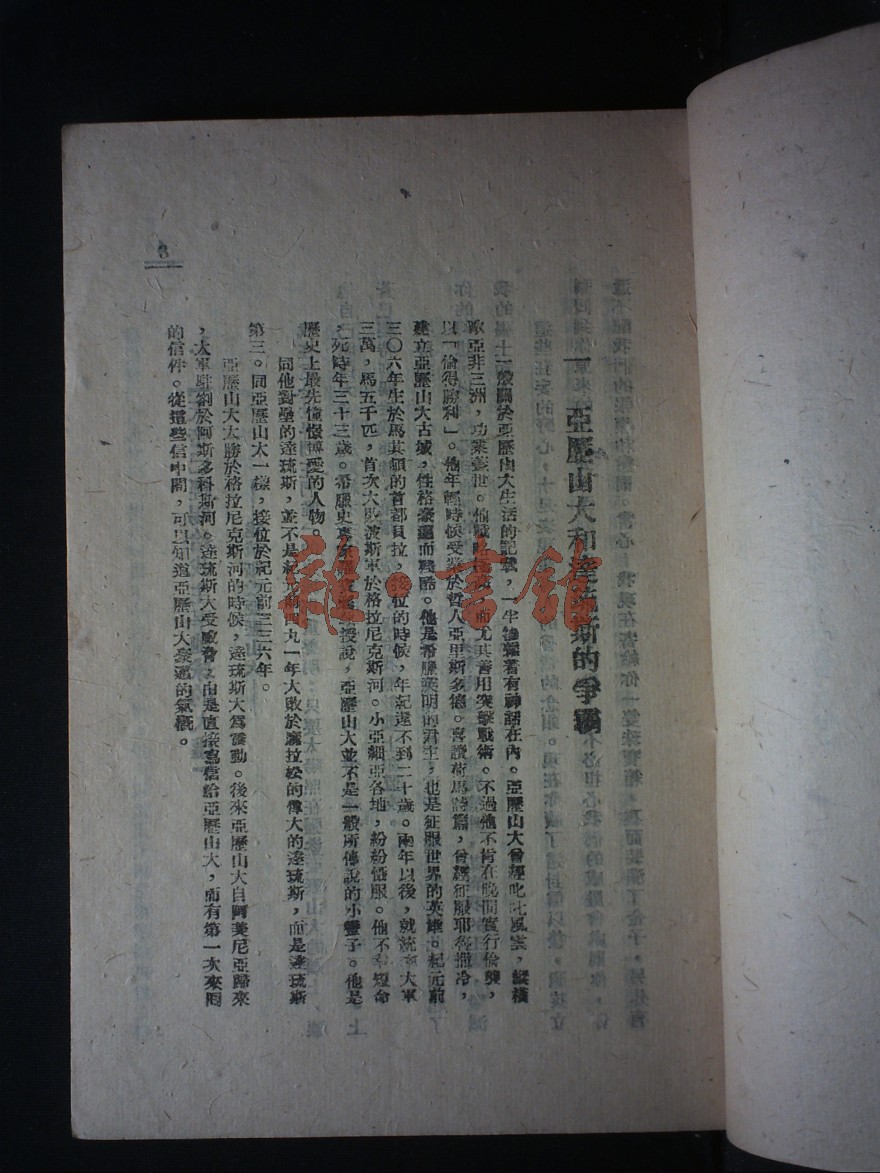 一 亞歷山大和達琉斯的爭霸
一般關於亞歷山大生活的記載，一半攙雜着有神話在內。亞歷山大曾經叱咤風雲，縱橫
歐亞非三洲，功業蓋世。他戰略，而尤其善用突擊戰術。不過他不肯在晚間實行偷襲，
以「偷得勝利」。他年輕時候受業於哲人亞里斯多德。喜讀荷馬詩篇，曾經征服耶路撒冷，
建立亞歷山大古城，性格豪邁而殘酷。他是希臘英明的君主，也是征服世界的英雄。紀元前
三〇六年生於馬其頓的首都貝拉，接位的時候，年紀還不到二十歲。兩年以後，就統率大軍
三萬，馬五千匹，首次大敗波斯軍於格拉尼克斯河。小亞細亞各地，紛紛慴服。他不幸短命
，死時年三十三歲。希臘史專家教授說，亞歷山大並不是一般所傳說的小蠻子。他是
歷史上最先憧憬博愛的人物。
同他對壘的達琉斯，並不是紀元前四九一年大敗於馬拉松的偉大的達琉斯，而是達琉斯
第三。同亞歷山大一樣，接位於紀元前三三六年。
亞歷山大大勝於格拉尼克斯河的時候，達琉斯大為震動。後來亞歷山大自阿美尼亞歸來
，大軍駐劄於阿斯多科斯河。達琉斯大受威脅，由是直接寫信給亞歷山大，而有第一次來問
的信件。從這些信中間，可以知道亞歷山大豪邁的氣概。
3
雜·書館